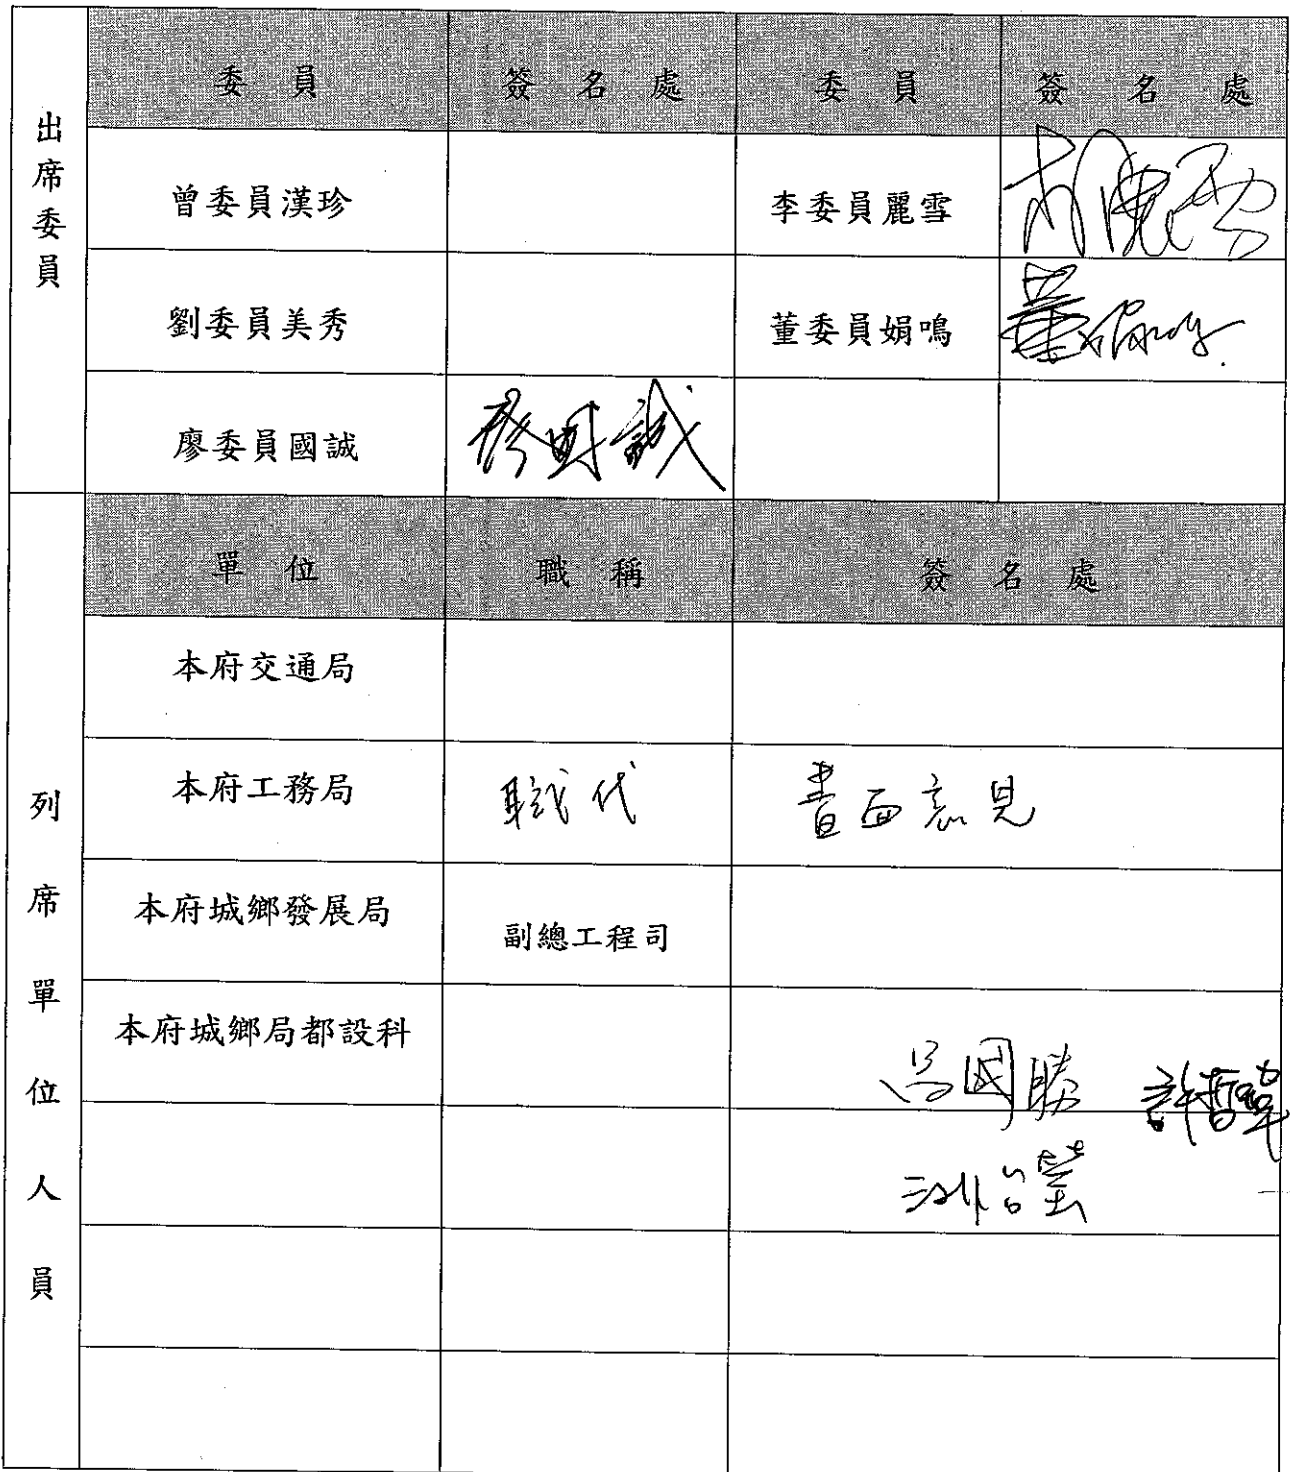 出席委員
委員 簽名處 委員 簽名處
曾委員漢珍 李委員麗雪
劉委員美秀 董委員娟鳴 董娟鳴
廖委員國誠 廖國誠
列席單位人員
單位 職稱 簽名處
本府交通局
本府工務局 職代 書面意見
本府城鄉發展局 副總工程司
本府城鄉局都設科
國勝 許哲瑋